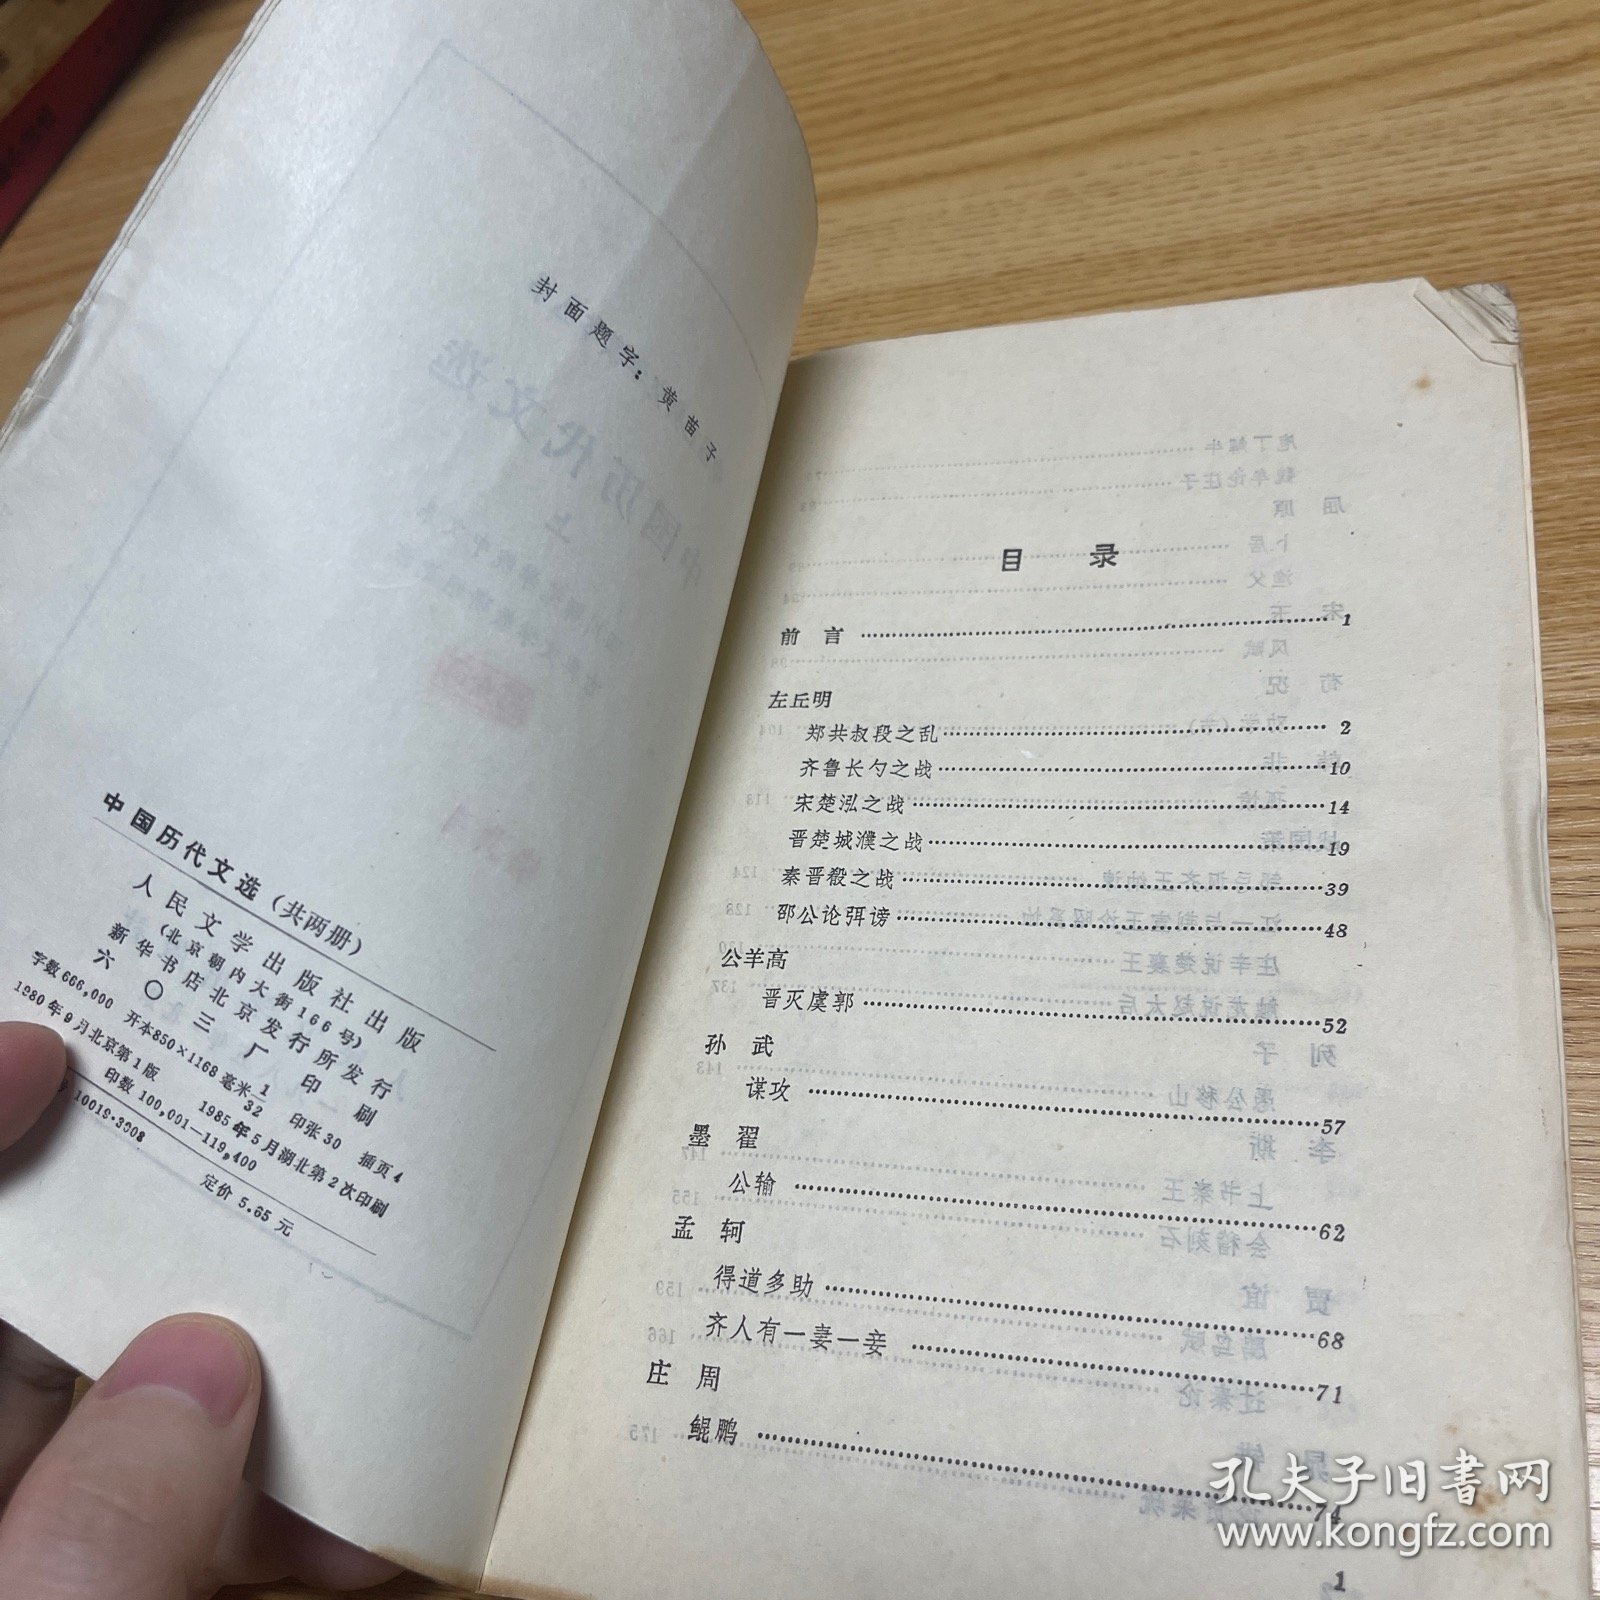 封面题字：黄苗子
中国历代文选（共两册）
人民文学出版社出版
（北京朝内大街166号）
新华书店北京发行所发行
六〇三厂印刷
字数666,000 开本850×1168毫米 1/32 印张30 插页4
1980年9月北京第1版 1985年5月湖北第2次印刷
印数 100,001—119,400
10019·3008
定价 5.65 元
目 录
前 言 …… 1
左丘明
郑共叔段之乱 …… 2
齐鲁长勺之战 …… 10
宋楚泓之战 …… 14
晋楚城濮之战 …… 19
秦晋殽之战 …… 39
邵公论弭谤 …… 48
公羊高
晋灭虞郭 …… 52
孙 武
谋攻 …… 57
墨 翟
公输 …… 62
孟 轲
得道多助 …… 68
齐人有一妻一妾 …… 71
庄 周
鲲鹏 …… 74
1
孔夫子旧书网
www.kongfz.com